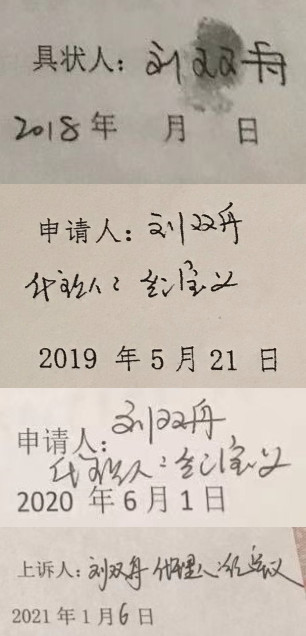 具状人：刘双舟
2018年 月 日
申请人：刘双舟
代理人：
2019 年 5 月 21 日
申请人：刘双舟
代理人：
2020 年 6 月 1 日
上诉人：刘双舟 代理人：
2021 年 1 月 6 日